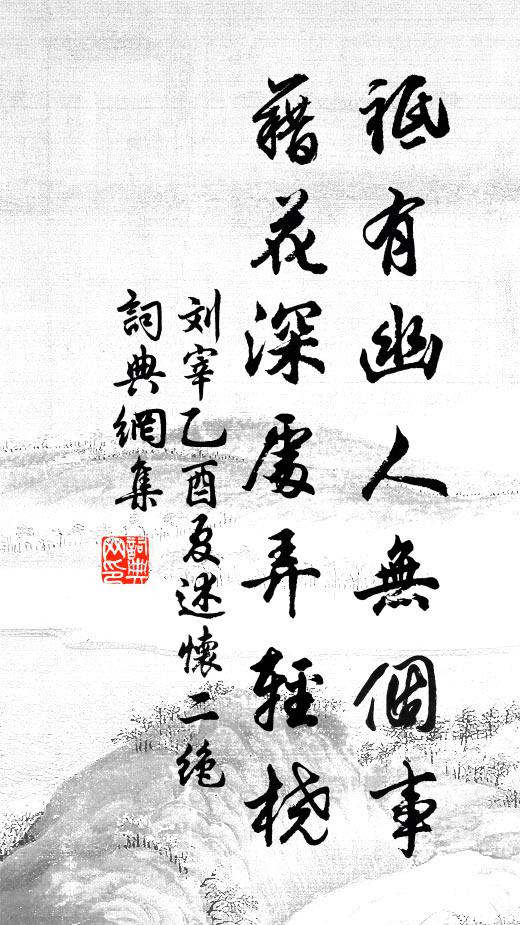 祗有幽人無個事
藉花深處弄輕橈
刘宰乙酉夏述懷二绝
詞典網集
詞典網印